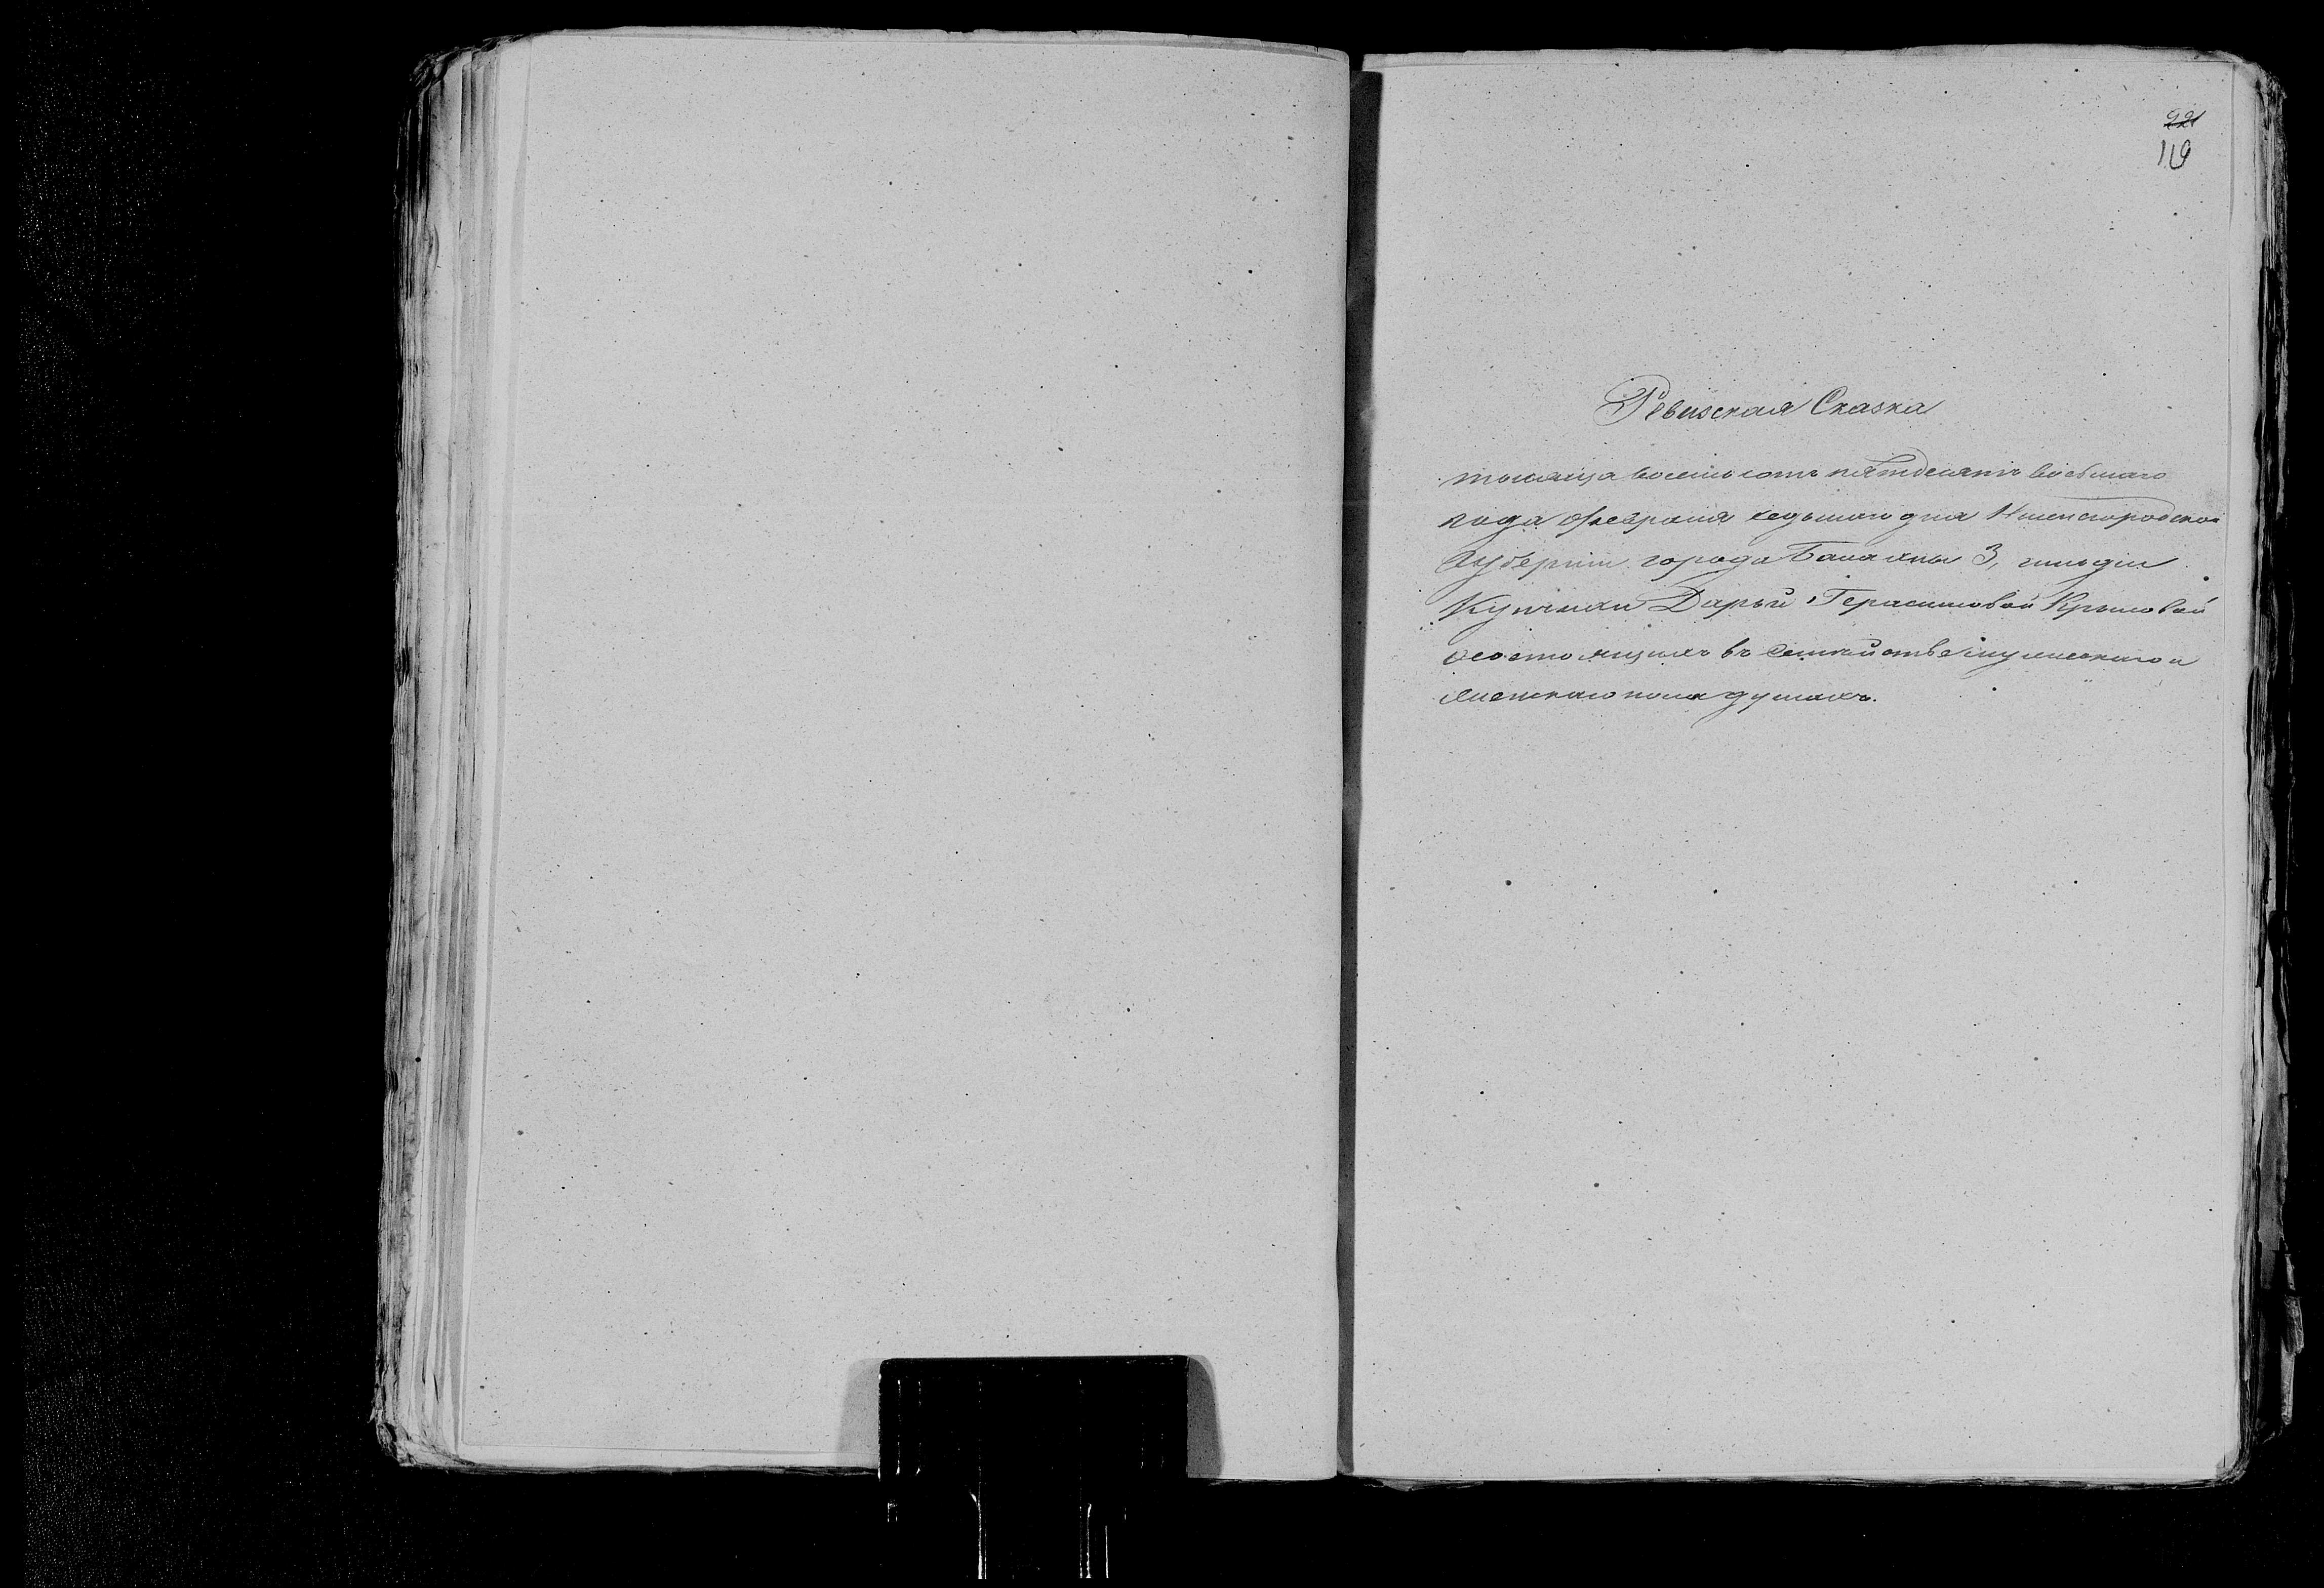 221
119
Ревизская Сказка
тысяща восемьсотъ пятдесятъ восьмаго
года Февраля седьмаго дня Нижегородской
Губерніи города Балахны 3, гильдіи
Купчихи Дарьи Герасимовой Крыловой
о состоящихъ въ семействе мужескаго и
женскаго пола душахъ.